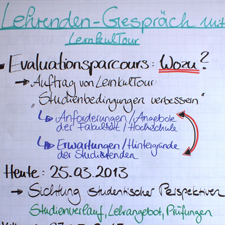 Lehrenden-Gespräch mit
LernkulTour
• Evaluationsparcours: Wozu?
→ Auftrag von LernkulTour
"Studienbedingungen verbessern"
↳ Anforderungen/Angebote
der Fakultät/Hochschule
↳ Erwartungen/Hintergründe
der Studierenden
Heute: 25.03.2013
→ Sichtung studentischer Perspektiven
Studienverlauf, Lehrangebot, Prüfungen